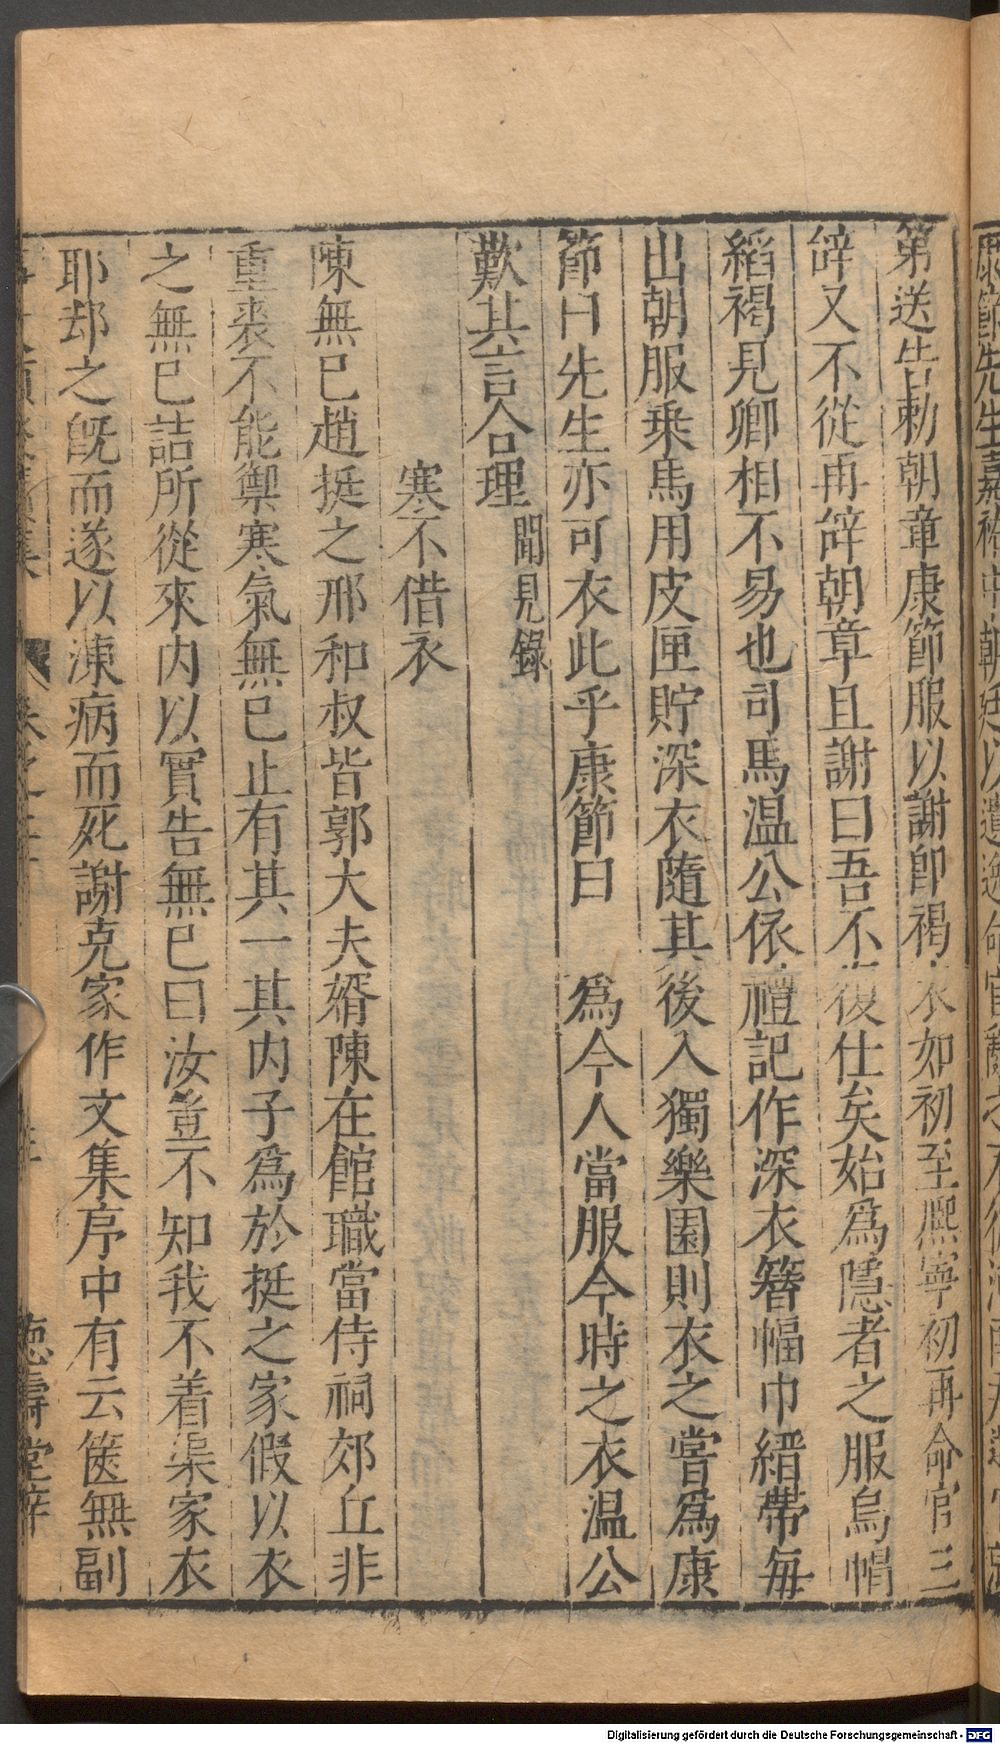 第送告勅朝章康節服以謝即褐衣如初至熈寧初再命官三
辝又不從再辝朝章且謝曰吾不復仕矣始爲隱者之服烏帽
縚褐見卿相不易也司馬温公依禮記作深衣簪幅巾縉帶每
出朝服乘馬用皮匣貯深衣隨其後入獨樂園則衣之嘗爲康
節曰先生亦可衣此乎康節曰 爲今人當服今時之衣温公
歎其言合理 聞見錄
寒不借衣
陳無巳趙挺之邢和叔皆郭大夫婿陳在館職當侍祠郊丘非
重裘不能禦寒氣無巳止有其一其内子爲於挺之家假以衣
之無巳詰所從來内以實告無巳曰汝豈不知我不着渠家衣
耶却之旣而遂以凍病而死謝克家作文集序中有云篋無副
德壽堂梓
Digitalisierung gefördert durch die Deutsche Forschungsgemeinschaft - DFG